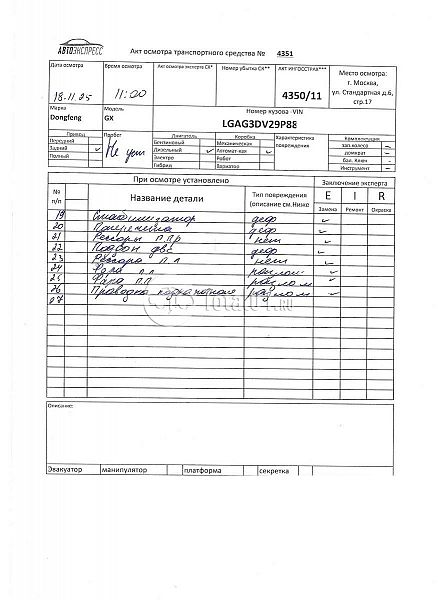 АВТОЭКСПРЕСС
Акт осмотра транспортного средства № 4351
Дата осмотра
Время осмотра
Акт осмотра эксперта СК*
Номер убытка СК**
АКТ ИНГОССТРАХ***
Место осмотра:
г. Москва,
ул. Стандартная д.6,
стр.17
18.11.25
11:00
4350/11
Марка
Модель
Номер кузова -VIN
Dongfeng
GX
LGAG3DV29P8E
Привод
Пробег
Двигатель
Коробка
Характеристика повреждения
Комплектация
Передний
Бензиновый
Механическая
зап.колесо –
Задний ✓
Дизельный ✓
Автомат-кая ✓
домкрат –
Полный
Электро
Робот
бал. Ключ –
Гибрид
Вариатор
Инструмент –
При осмотре установлено
Заключение эксперта
№ п/п
Название детали
Тип повреждения
(описание см.Ниже
E I R
Замена Ремонт Окраска
19 Стабилизатор деф ✓
20 деф ✓
21 Рессоры П ПР нет ✓
22 двс деф ✓
23 Рессора П Л нет ✓
24 Фара разлом ✓
25 Фара П П разлом ✓
26 Проводка разлом ✓
27
Total01.RU
Описание:
Эвакуатор
манипулятор
платформа
секретка